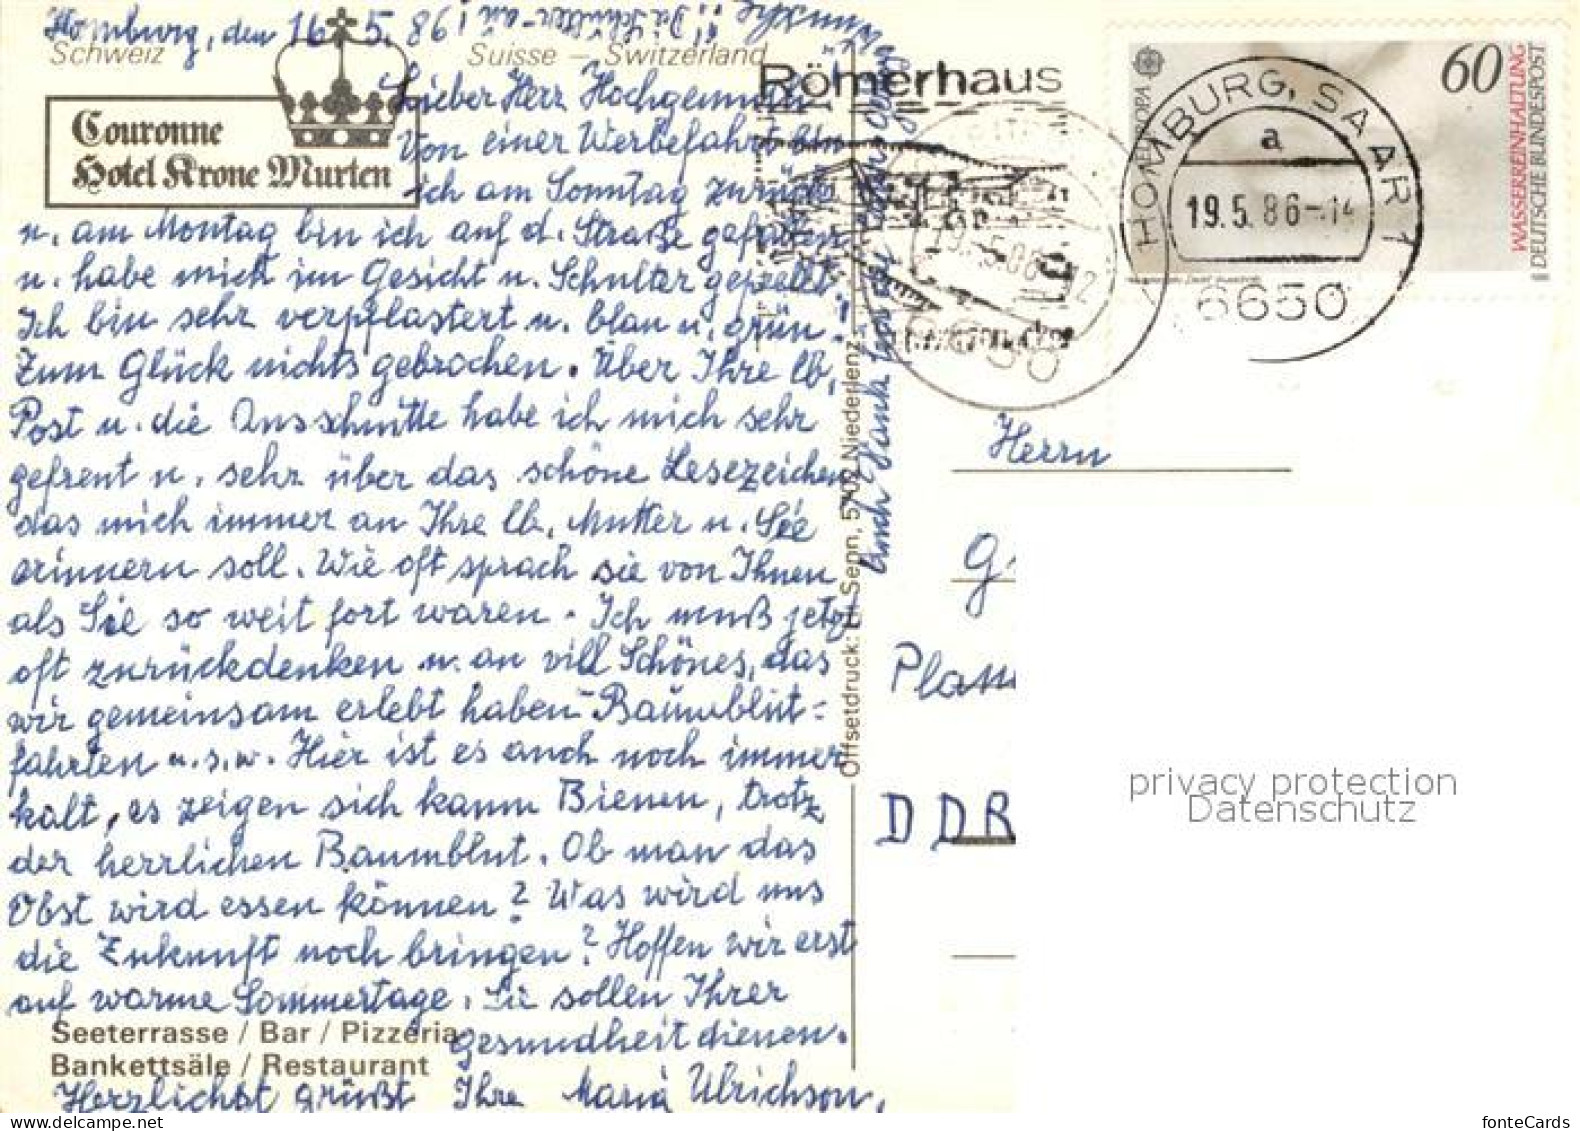 Homburg, den 16. 5. 86!
Schweiz Suisse – Switzerland
Couronne
Hotel Krone Murten
Lieber Herr
Von einer Werbefahrt bin
ich am Sonntag zurück
u. am Montag bin ich auf d. Straße gefallen
u. habe mich im Gesicht u. Schulter geprellt.
Ich bin sehr verpflastert u. blau u. grün!
Zum Glück nichts gebrochen. Über Ihre lb.
Post u. die Ausschnitte habe ich mich sehr
gefreut u. sehr über das schöne Lesezeichen
das mich immer an Ihre lb. Mutter u. Sie
erinnern soll. Wie oft sprach sie von Ihnen
als Sie so weit fort waren. Ich muß jetzt
oft zurückdenken u. an vill Schönes, das
wir gemeinsam erlebt haben – Baumblüt=
fahrten u.s.w. Hier ist es auch noch immer
kalt, es zeigen sich kaum Bienen, trotz
der herrlichen Baumblut. Ob man das
Obst wird essen können? Was wird uns
die Zukunft noch bringen? Hoffen wir erst
auf warme Sommertage. Sie sollen Ihrer
Gesundheit dienen.
Seeterrasse / Bar / Pizzeria
Bankettsäle / Restaurant
Herzlichst grüßt Ihre Maria Ulrichson,
Offsetdruck: Senn, 5702 Niederlenz
Römerhaus
HOMBURG, SAAR 1
a
19.5.86-14
6650
EUROPA
60
WASSERREINHALTUNG
DEUTSCHE BUNDESPOST
Herrn
G
DDR
privacy protection
Datenschutz
fonteCards